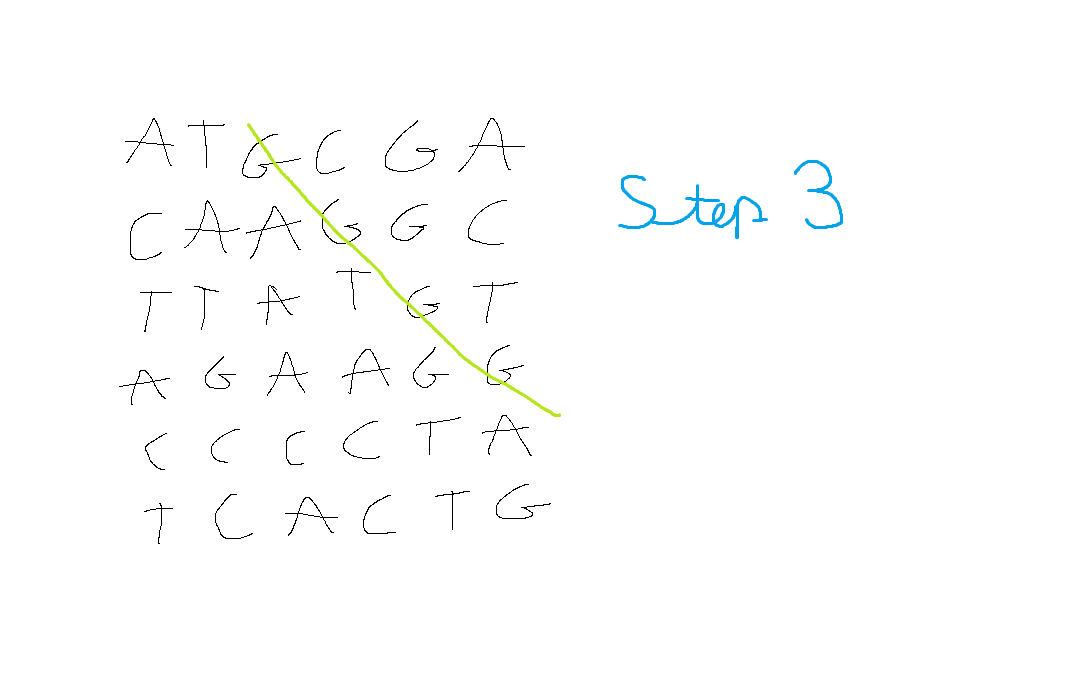 A T G C G A
C A A G G C
T T A T G T
A G A A G G
C C C C T A
T C A C T G
Step 3